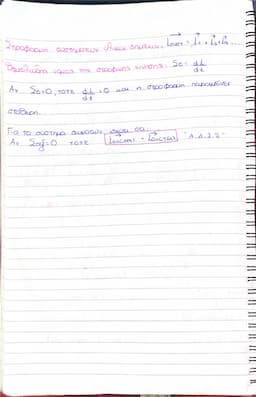 Στροφορμή συστήματος υλικών σημείων: L⃗συστ = L⃗₁ + L⃗₂ + L⃗₃ ....
Θεμελιώδης νόμος της στροφικής κίνησης: Στ = dL/dt
Αν Στ=0, τότε dL/dt = 0 και η στροφορμή παραμένει
σταθερή.
Για το σύστημα σωμάτων ισχύει ότι:
Αν Στεξ=0 τότε L⃗συστ(πριν) = L⃗συστ(μετά) "Α.Δ.Σ."